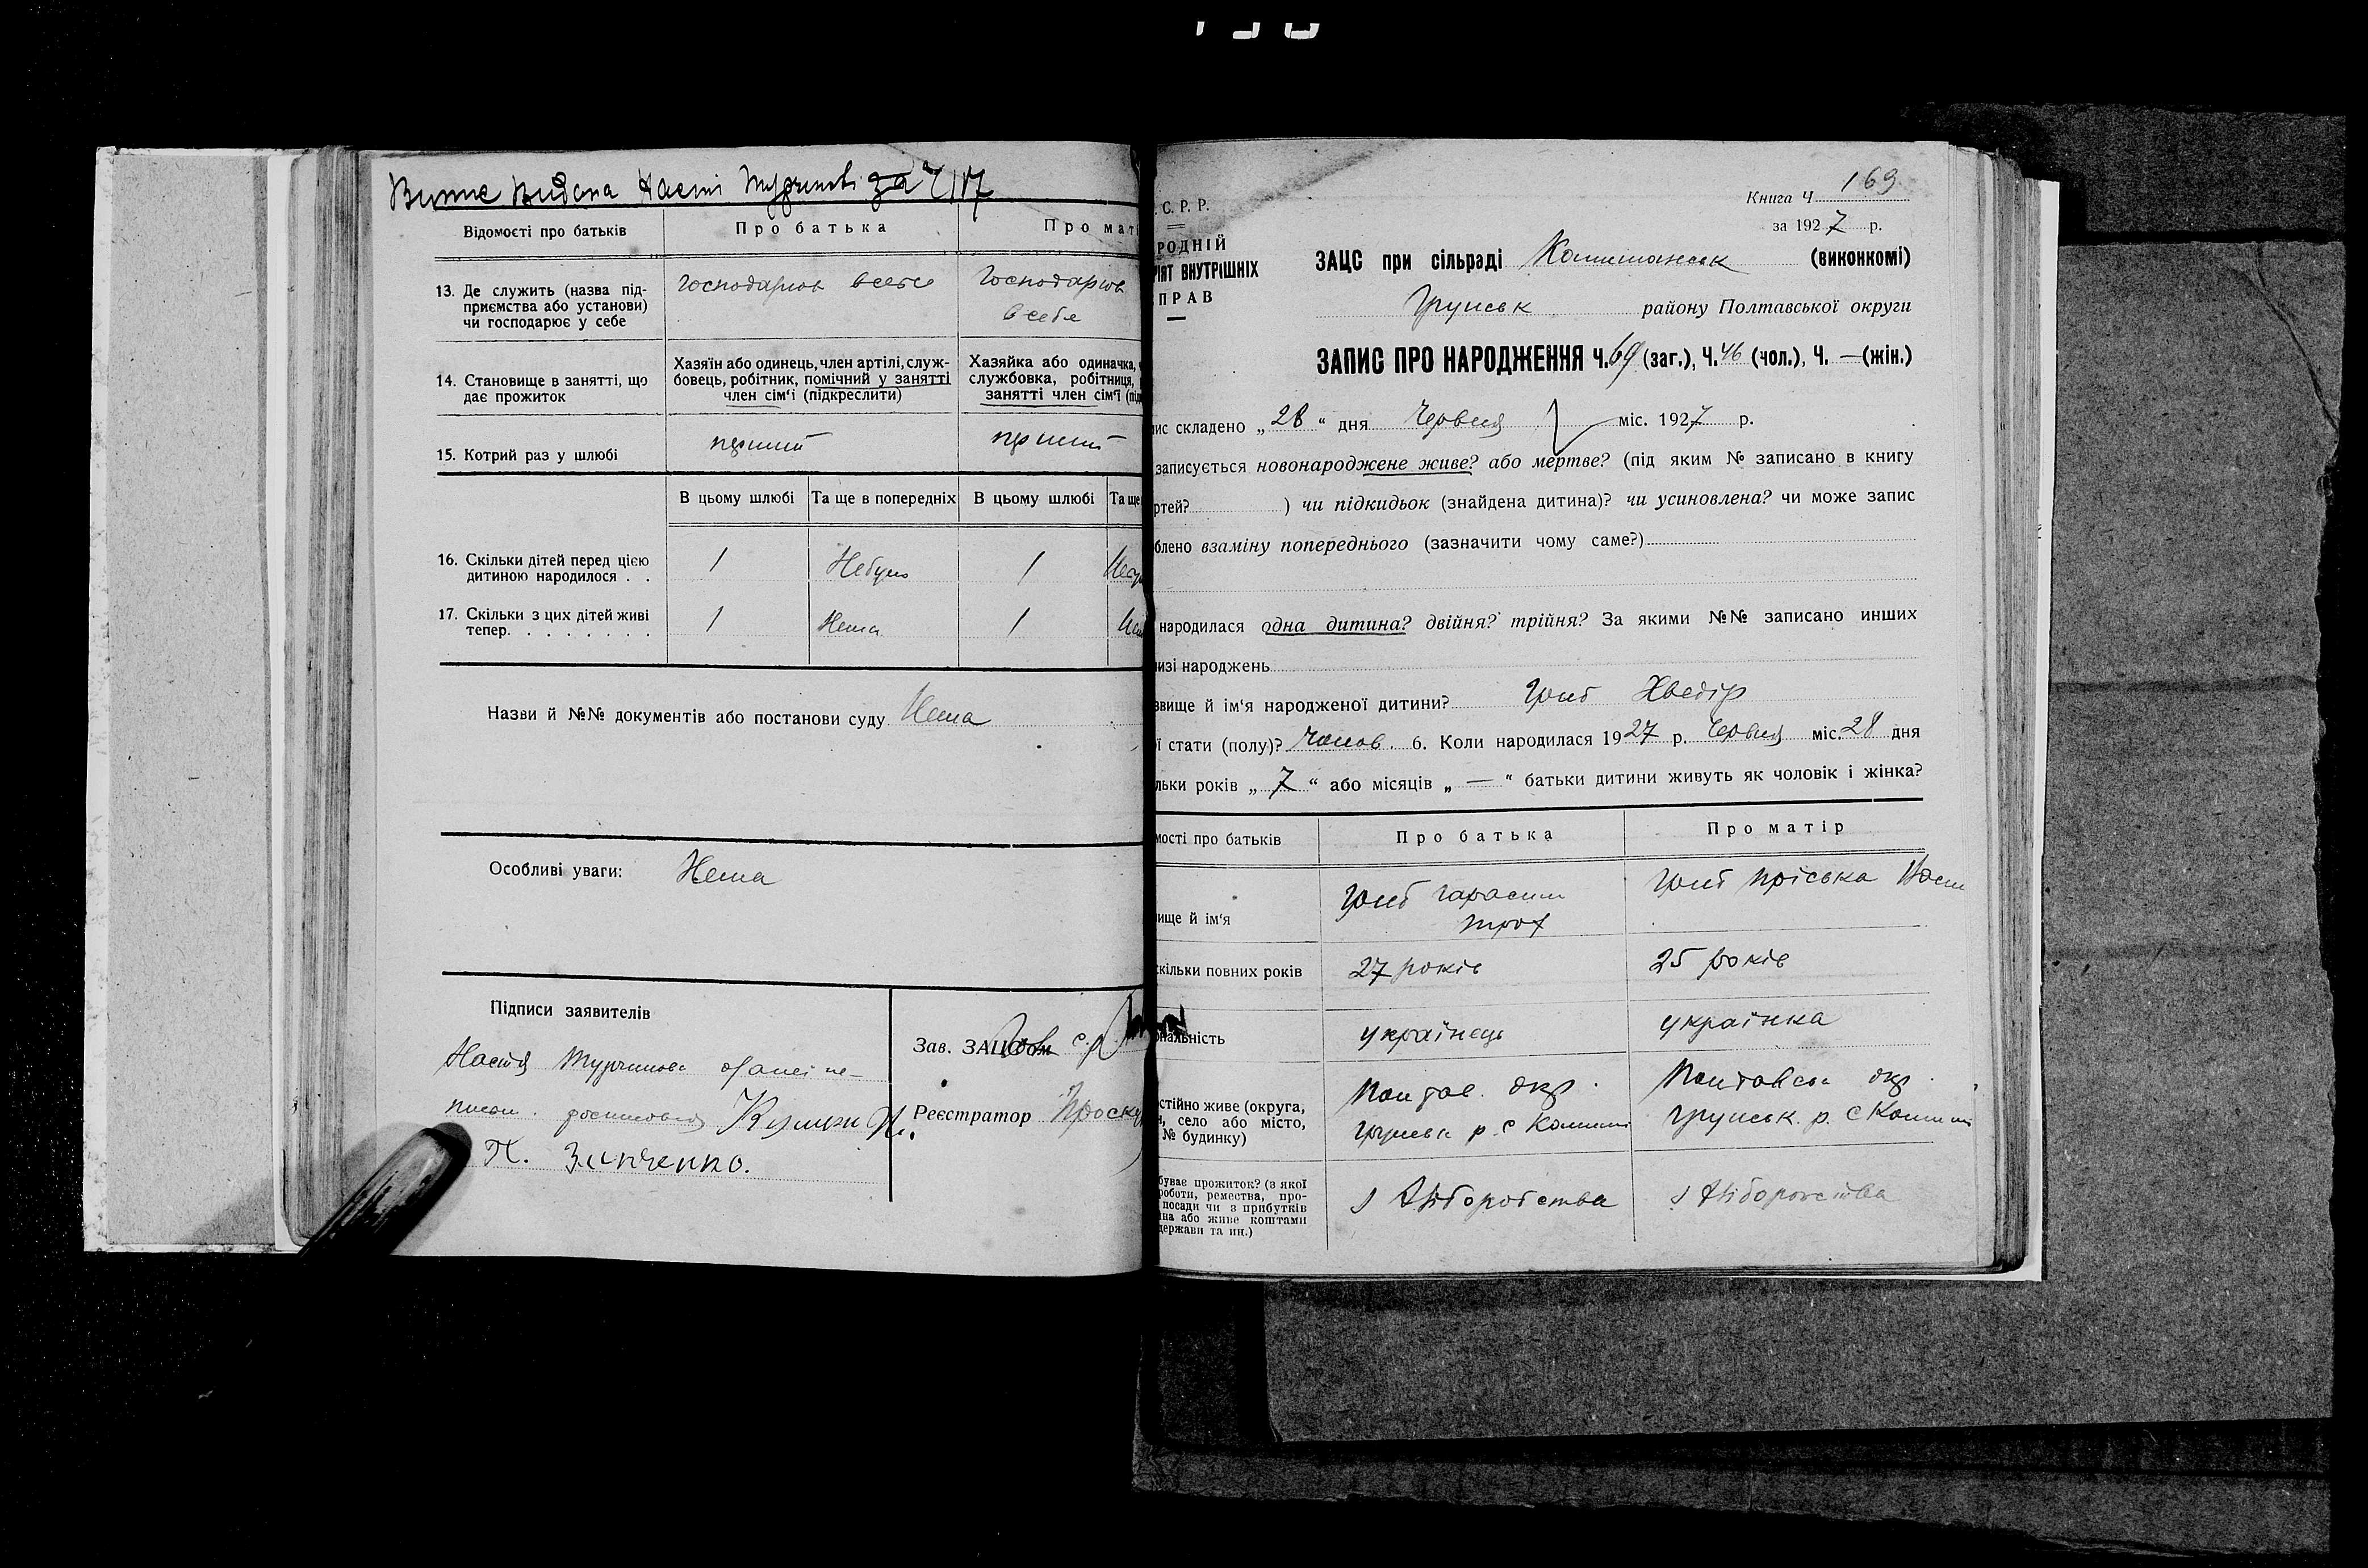 Витис видана Насті Турчинові за Ч 117
Відомості про батьків
Про батька
Про маті
13. Де служить (назва під-
приємства або установи)
чи господарює у себе
Господарює в себе
Господарює
в себе
14. Становище в занятті, що
дає прожиток
Хазяїн або одинець, член артілі, служ-
бовець, робітник, помічний у занятті
член сім'ї (підкреслити)
Хазяйка або одиначка,
службовка, робітниця,
занятті член сім'ї (під
15. Котрий раз у шлюбі
перший
перший
В цьому шлюбі
Та ще в попередніх
В цьому шлюбі
Та ще
16. Скільки дітей перед цією
дитиною народилося . .
1
Небуло
1
17. Скільки з цих дітей живі
тепер. . . . . . . .
1
Нема
1
Назви й №№ документів або постанови суду Нема
Особливі уваги: Нема
Підписи заявителів
Настя Турчинова
Зав. ЗАЦСом
Реєстратор Проску
П. Зинченко.
169
Книга Ч
за 1927 р.
. С. Р. Р.
РОДНІЙ
РІЯТ ВНУТРІШНІХ
ПРАВ
ЗАЦС при сільраді (виконкомі)
Грунськ району Полтавської округи
ЗАПИС ПРО НАРОДЖЕННЯ Ч. 69 (заг.), Ч. 46 (чол.), Ч. — (жін.)
ис складено „28“ дня Червня міс. 1927 р.
записується новонароджене живе? або мертве? (під яким № записано в книгу
ртей? ) чи підкидьок (знайдена дитина)? чи усиновлена? чи може запис
блено взаміну попереднього (зазначити чому саме?)
народилася одна дитина? двійня? трійня? За якими №№ записано инших
изі народжень
звище й ім'я народженої дитини? Хведір
ї стати (полу)? Чолов. 6. Коли народилася 1927 р. Червня міс. 28 дня
льки років „7“ або місяців „—“ батьки дитини живуть як чоловік і жінка?
мості про батьків
Про батька
Про матір
вище й ім'я
Гарасим
Трох
Пріська
скільки повних років
27 років
25 років
ональність
українець
українка
стійно живе (округа,
н, село або місто,
№ будинку)
Полтав. окр.
Грунськ р. с
Полтавськ окр.
Грунськ. р. с
буває прожиток? (з якої
роботи, ремества, про-
посади чи з прибутків
їна або живе коштами
держави та ин.)
з хліборобства
з хліборобства